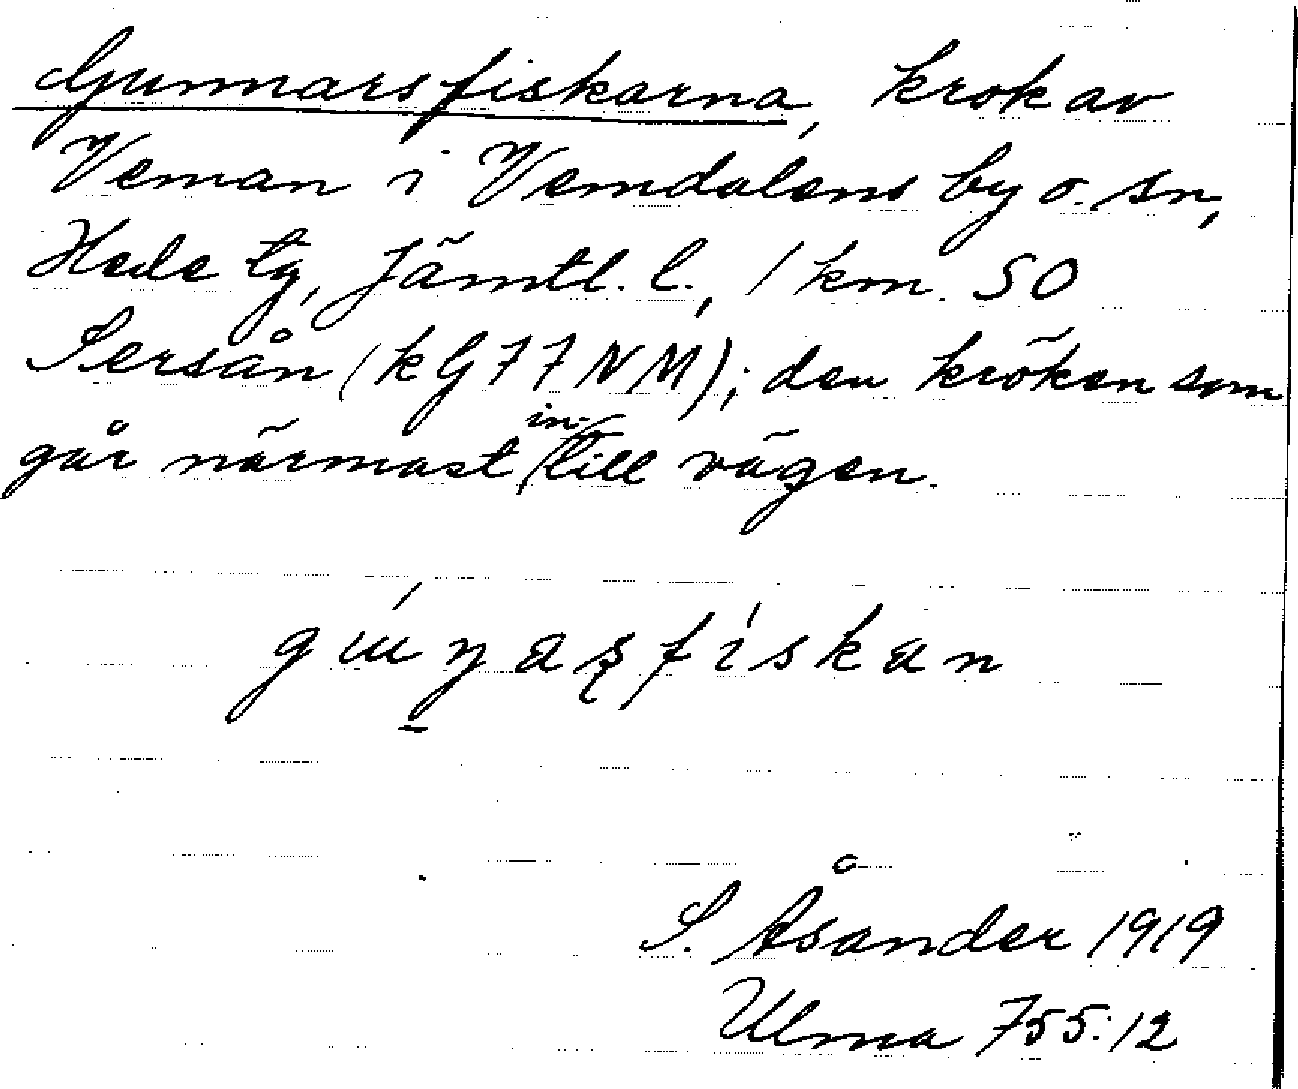 Gunnarsfiskarna, krok av
Veman i Vemdalens by o. sn,
Hede tg, Jämtl. l., 1 km. SO
Sersån (kG77NM); den kröken som
går närmast in-till vägen.
S. Åsander 1919
Ulma 755:12